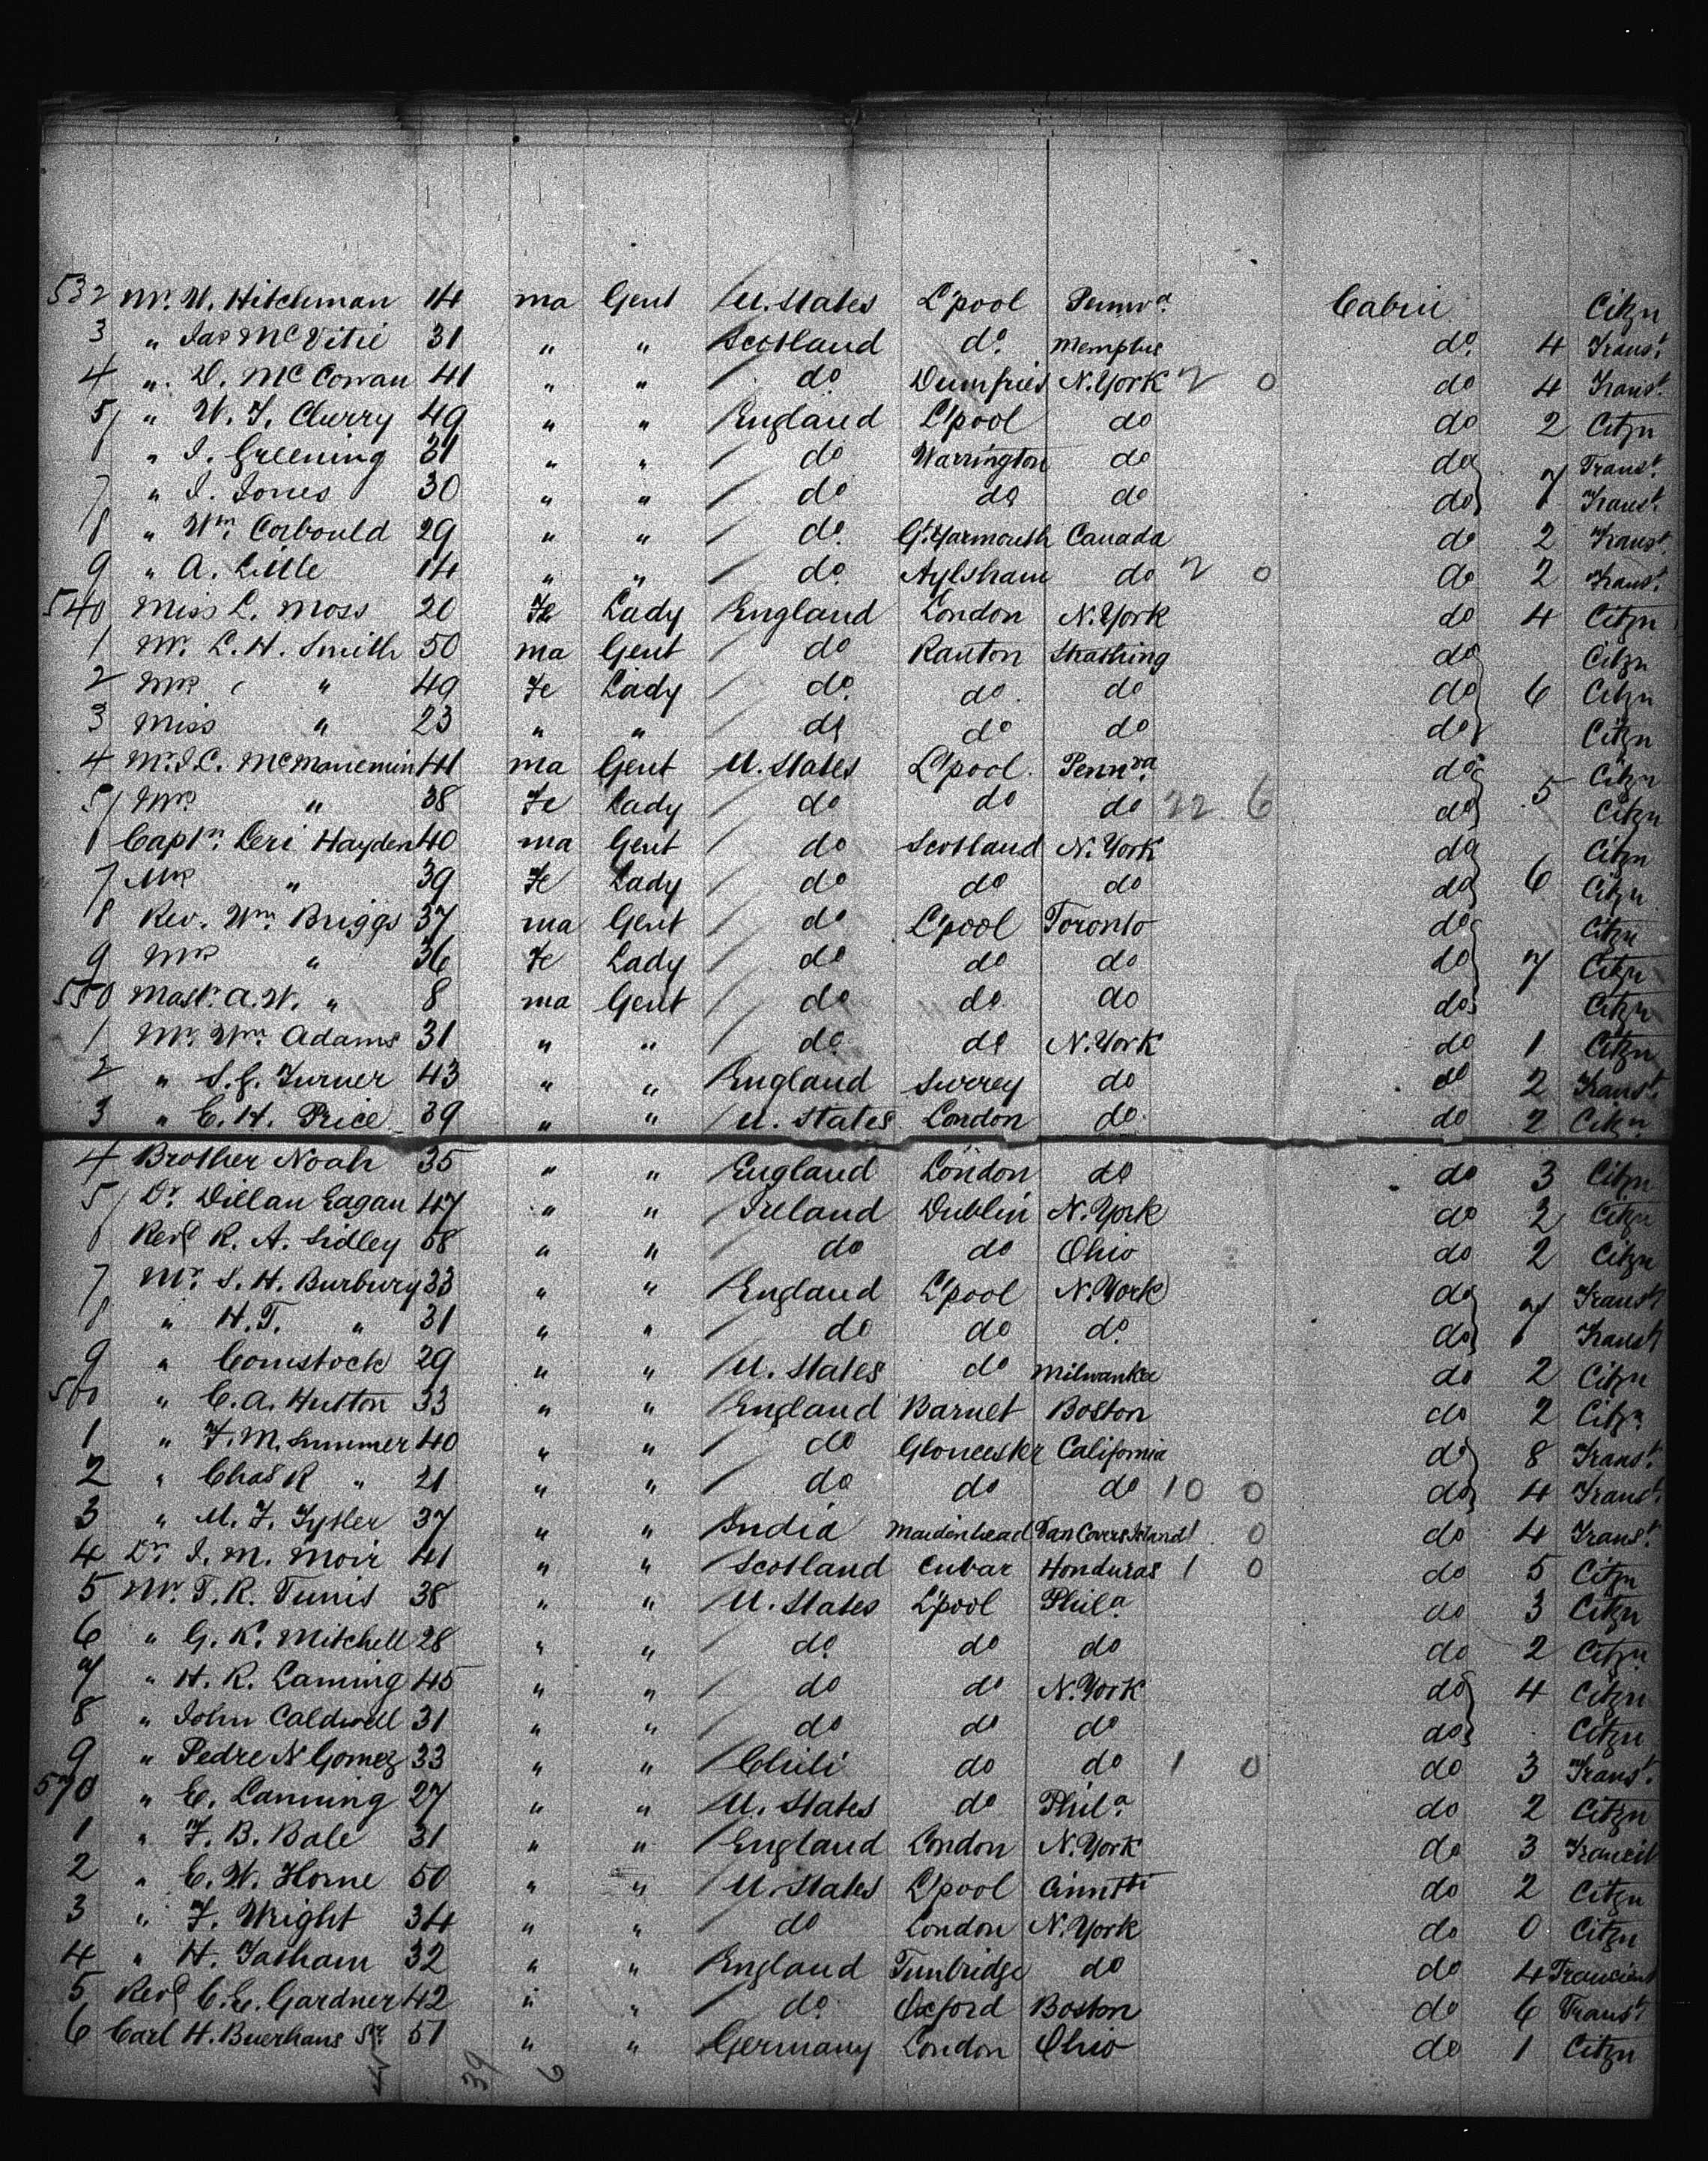 532 Mr. W. Hitchman 14 ma Gent U. States L'pool Pennva. Cabin Citzn
3 " Jas McVitie 31 " " Scotland do. Memphis do. 4 Transt.
4 " D. McCowan 41 " " do Dumfries N. York 2 0 do 4 Transt.
5 " W. J. Cherry 49 " " England L'pool do do 2 Citzn
6 " J. Greening 31 " " do Warrington do do 7 Transt.
7 " J. Jones 30 " " do do do do Transt.
8 " Wm. Corbould 29 " " do. Gt. Yarmouth Canada do 2 Transt.
9 " A. Little 14 " " do. Aylsham do 2 0 do 2 Transt.
540 Miss L. Moss 20 Fe Lady England London N. York do 4 Citzn
1 Mr. L. H. Smith 50 ma Gent do Ranton do Citzn
2 Mrs " 49 Fe Lady do do do do 6 Citzn
3 Miss " 23 " " do do do do Citzn
4 Mr. J. C. McManemin 41 ma Gent U. States L'pool. Pennva. do Citzn
5 Mrs " 38 Fe Lady do do do 22. 6 do 5 Citzn
6 Captn. Levi Hayden 40 ma Gent do Scotland N. York do Citzn
7 Mrs " 39 Fe Lady do do do do 6 Citzn
8 Rev. Wm. Briggs 37 ma Gent do L'pool Toronto do Citzn
9 Mrs " 36 Fe Lady do do do do 7 Citzn
550 Mastr. A. W. " 8 ma Gent do do do do Citzn
1 Mr. Wm. Adams 31 " " do do N. York do 1 Citzn
2 " S. G. Turner 43 " " England Surrey do do 2 Transt.
3 " E. H. Price 39 " " U. States London do. do 2 Citzn
4 Brother Noah 35 " " England London do do 3 Citzn
5 Dr. Dillan Eagan 47 " " Ireland Dublin N. York do 2 Citzn
6 Revd R. A. Sidley 58 " " do do Ohio do 2 Citzn
7 Mr. S. H. Burbury 33 " " England L'pool N. York do 7 Transt
8 " H. T. " 31 " " do do do. do Transt
9 " Comstock 29 " " U. States do Milwaukee do 2 Citzn
560 " C. A. Hutton 33 " " England Barnet Boston do 2 Citzn
1 " F. M. Summer 40 " " do Gloucester California do 8 Transt.
2 " Chas R " 21 " " do do do 10 0 do 4 Transt.
3 " M. F. Tytler 37 " " India Maidenhead Van Covers Island 1 0 do 4 Transt.
4 Dr. J. M. Moir 41 " " Scotland Cubar Honduras 1 0 do 5 Citzn
5 Mr. T. R. Tunis 38 " " U. States L'pool Phila. do 3 Citzn
6 " G. K. Mitchell 28 " " do. do do do 2 Citzn
7 " H. R. Laming 45 " " do do N. York do 4 Citzn
8 " John Caldwell 31 " " do do do do Citzn
9 " Pedre N Gomez 33 " " Chili do do 1 0 do 3 Transt.
570 " E. Lanning 27 " " U. States do Phila. do 2 Citzn
1 " F. B. Bale 31 " " England London N. York do 3 Transit
2 " E. W. Horne 50 " " U. States L'pool Cinntti do 2 Citzn
3 " F. Wright 34 " " do London N. York do 0 Citzn
4 " H. Tatham 32 " " England Tunbridge do do 4 Trancient
5 Revd C. E. Gardner 42 " " do. Oxford Boston do 6 Transt.
6 Carl H. Buerhaus Sr. 51 " " Germany London Ohio do 1 Citzn
39 6